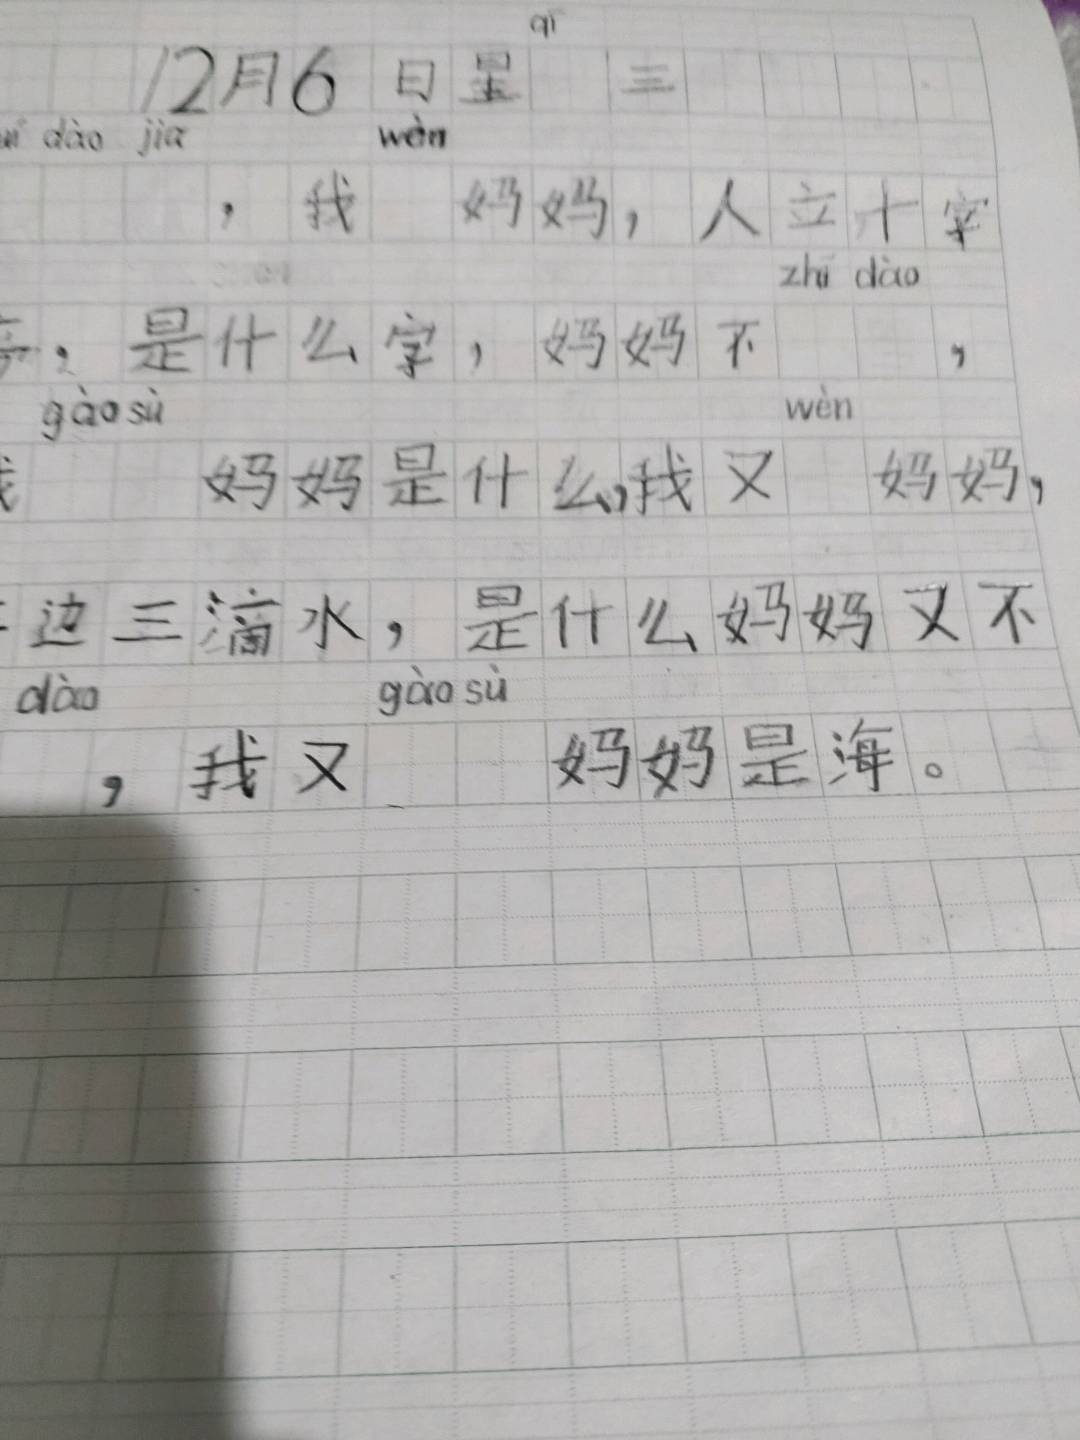 qī
12月6日星 三
dào jiā wèn
，我 妈妈，人立十字
zhī dào
，是什么字，妈妈不 ，
gào sù wèn
我 妈妈是什么，我又 妈妈，
边三滴水，是什么妈妈又不
dào gào sù
，我又 妈妈是海。